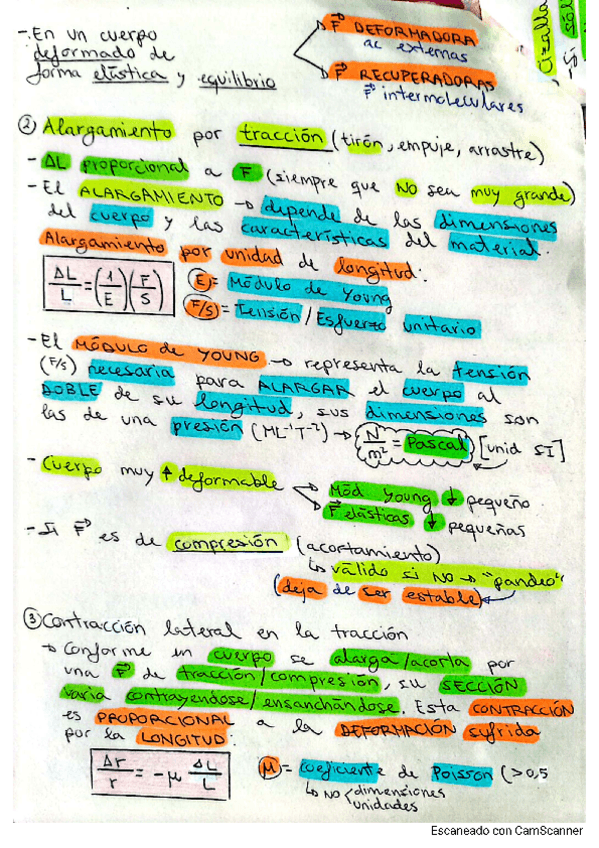 - En un cuerpo
deformado de
forma elástica y equilibrio
F DEFORMADORA
ac externas
F RECUPERADORAS
F intermoleculares
Cizalla
- Si sól
② Alargamiento por tracción (tirón, empuje, arrastre)
- ΔL proporcional a F (siempre que NO sea muy grande)
- El ALARGAMIENTO → depende de las dimensiones
del cuerpo y las características del material.
Alargamiento por unidad de longitud:
ΔL/L = (1/E)(F/S)
E = Módulo de Young
F/S = Tensión / Esfuerzo unitario
- El MÓDULO de YOUNG → representa la tensión
(F/S) necesaria para ALARGAR el cuerpo al
DOBLE de su longitud, sus dimensiones son
las de una presión (ML⁻¹T⁻²) → N/m² = Pascal [unid SI]
- Cuerpo muy ↑ deformable
Mód Young ↓ pequeño
F elásticas ↓ pequeñas
- Si F es de compresión (acortamiento)
↳ válido si NO → "pandeo"
(deja de ser estable)
③ Contracción lateral en la tracción
→ Conforme un cuerpo se alarga/acorta por
una F de tracción/compresión, su SECCIÓN
varía contrayendose/ensanchándose. Esta CONTRACCIÓN
es PROPORCIONAL a la DEFORMACIÓN sufrida
por la LONGITUD:
Δr/r = -μ ΔL/L
μ = coeficiente de Poisson (>0,5
↳ NO dimensiones
unidades
Escaneado con CamScanner